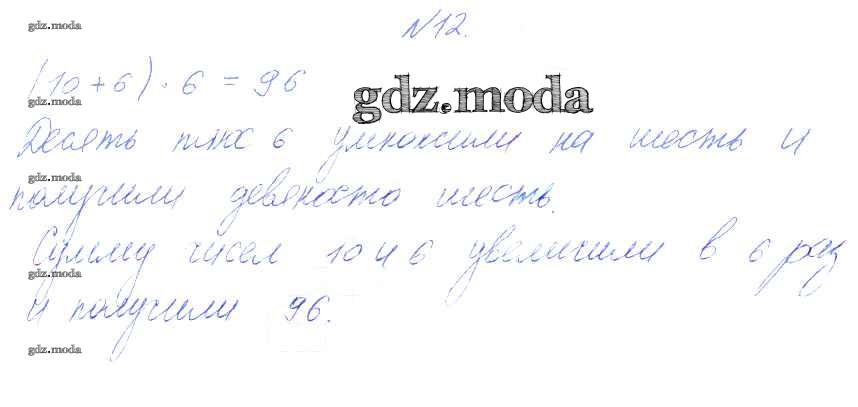 gdz.moda
№12.
(10+6)·6=96
gdz.moda
gdz.moda
Десять плюс 6 умножили на шесть и
gdz.moda
получили девяносто шесть.
Сумму чисел 10 и 6 увеличили в 6 раз
gdz.moda
и получили 96.
gdz.moda